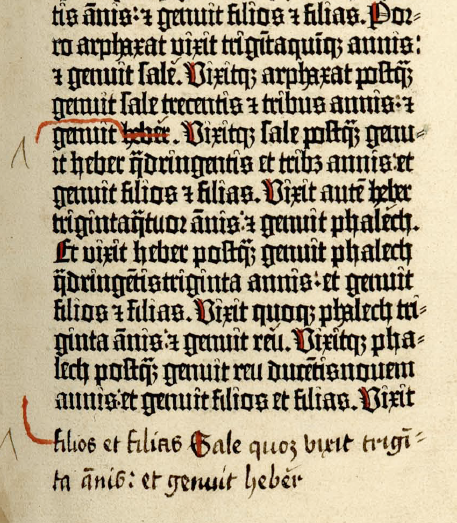 tis ānis: ⁊ genuit filios ⁊ filias. Por⸗
ro arphaxat vixit trigītaquīꝗ annis:
⁊ genuit sale. Vixitꝗ arphaxat postꝗ̄
genuit sale trecentis ⁊ tribus annis: ⁊
genuit heber. Vixitꝗ sale postꝗ̄ genu⸗
it heber q̄dringentis et tribꝫ annis: et
genuit filios ⁊ filias. Vixit autē heber
trigintaq̄tuor ānis: ⁊ genuit phalech.
Et vixit heber postꝗ̄ genuit phalech
q̄dringētistriginta annis: et genuit
filios ⁊ filias. Vixit quoꝗ phalech tri⸗
ginta ānis: ⁊ genuit reu. Vixitꝗ pha⸗
lech postꝗ̄ genuit reu ducētisnouem
annis: et genuit filios et filias. Vixit
filios et filias Sale quoꝗ vixit trigī⸗
ta ānis: et genuit heber